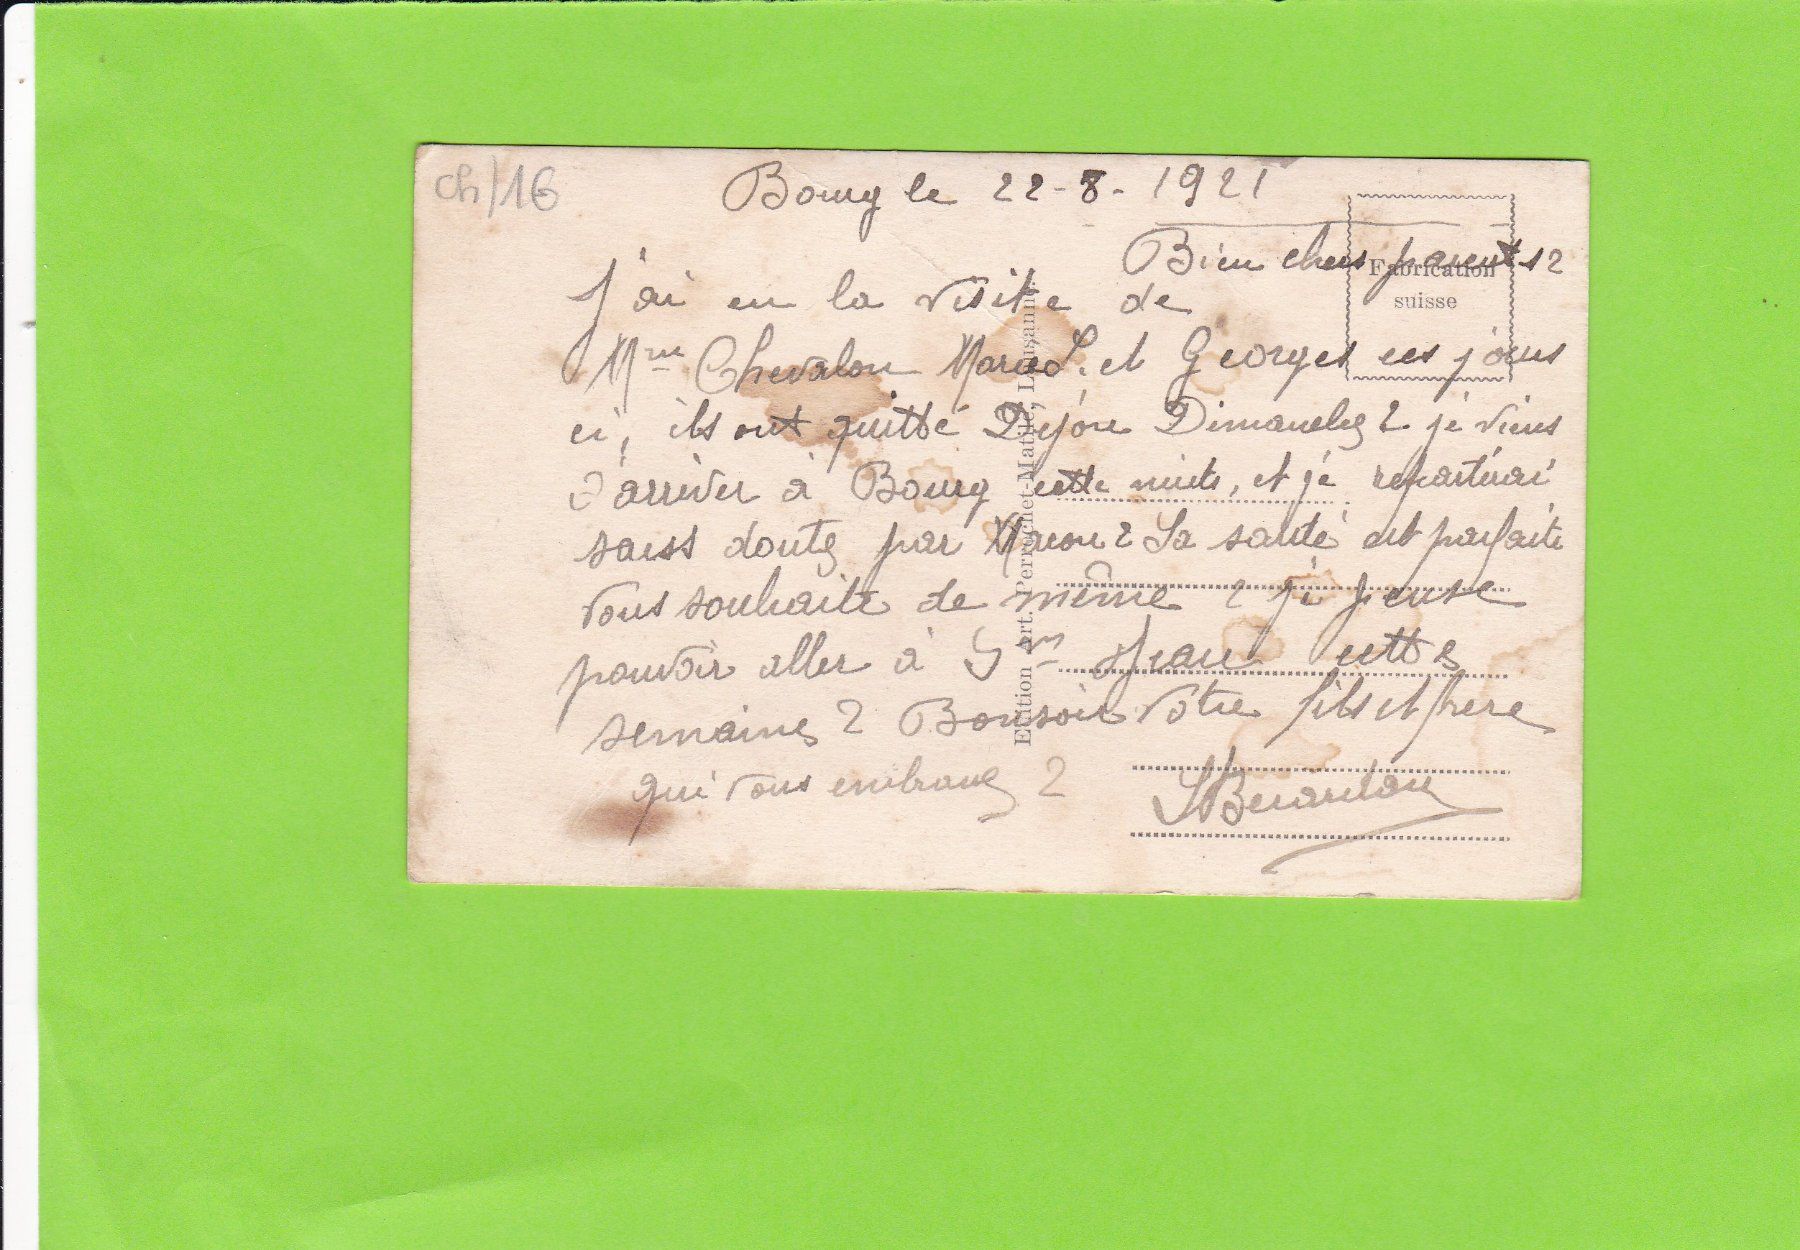 ch/16
Bourg le 22-8-1921
Bien chers parents
Fabrication
suisse
J'ai eu la visite de
Mme Chevalon et Georges ces jours
ci, ils ont quitté Dijon Dimanche je viens
d'arriver à Bourg cette nuit, et je repartirai
sans doute par Macon La santé est parfaite
vous souhaite de même je pense
pouvoir aller à Jean cette
semaine Bonsoir votre fils et frère
qui vous embrasse
Edition Art. Perrochet-Matile, Lausanne